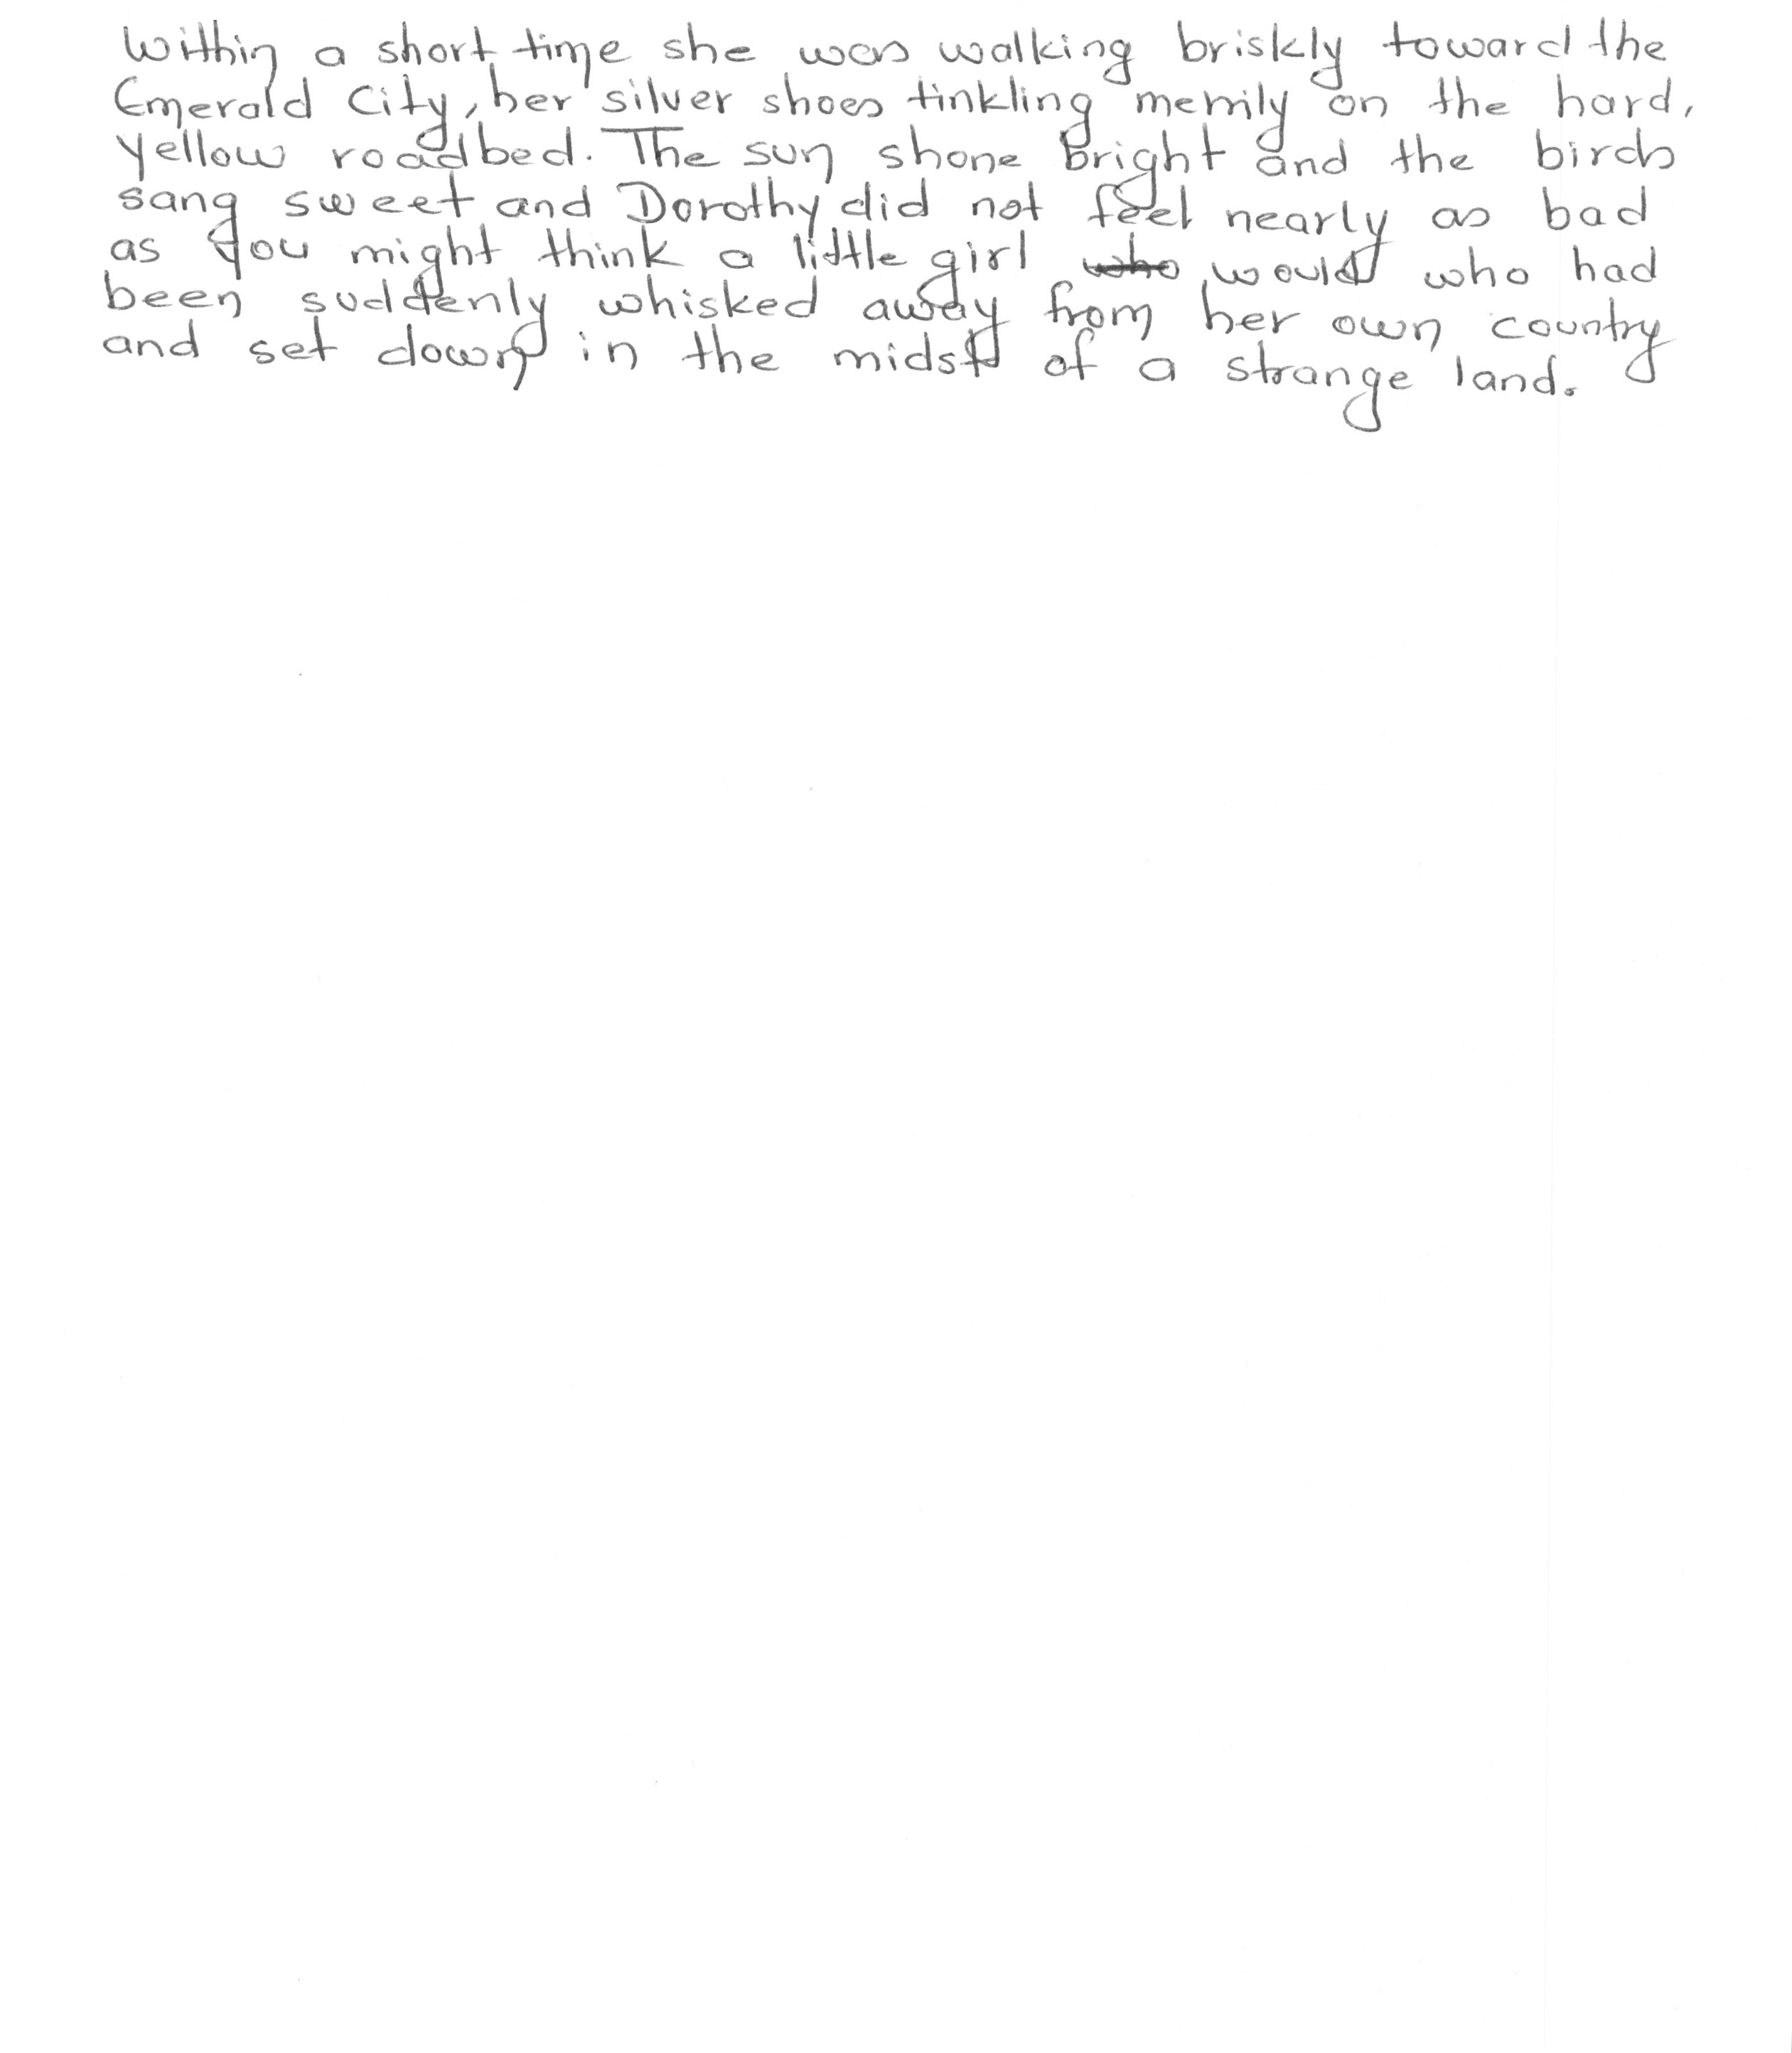 Within a short time she was walking briskly toward the
Emerald City, her silver shoes tinkling merrily on the hard,
yellow roadbed. The sun shone bright and the birds
sang sweet and Dorothy did not feel nearly as bad
as you might think a little girl who would who had
been suddenly whisked away from her own country
and set down in the midst of a strange land.